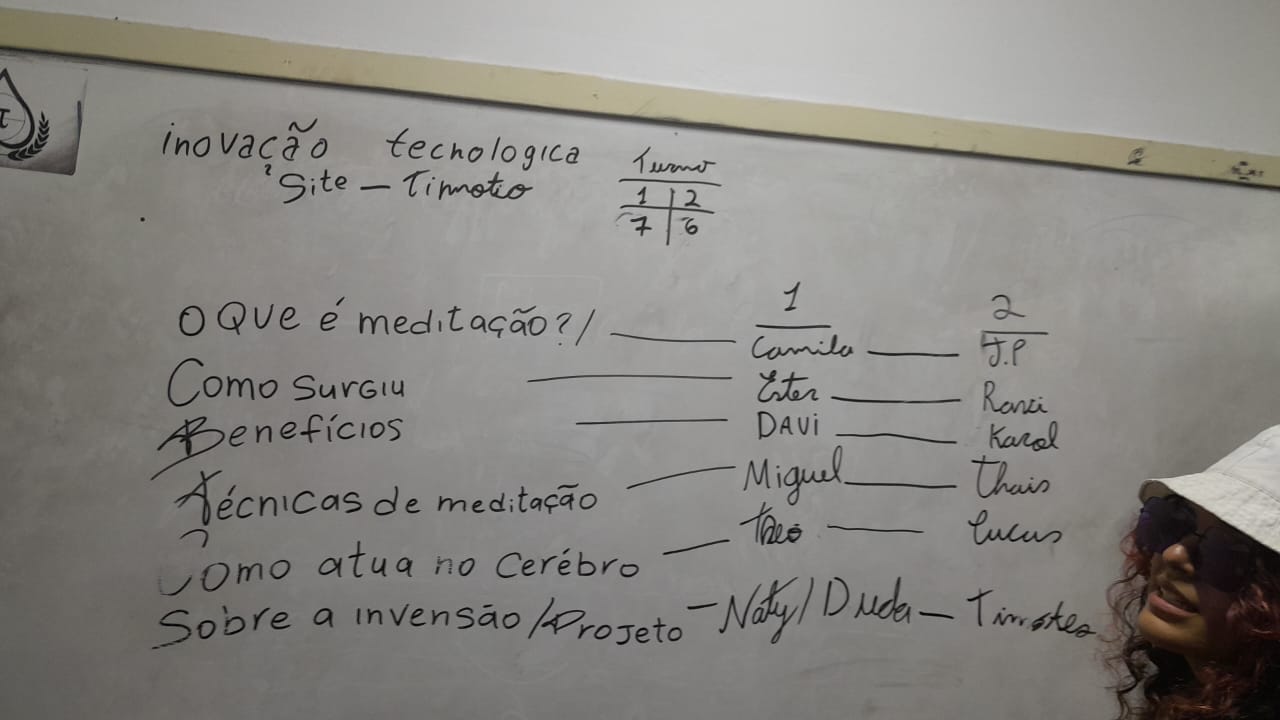 inovação tecnologica
Site – Timoteo
Turno
1 2
7 6
1 2
O QUE é meditação?/ Camila J.P
Como Surgiu Ester
Benefícios DAVI Karol
Técnicas de meditação Miguel Thais
Como atua no Cerébro Theo Lucas
Sobre a invensão/Projeto – Naty/Duda – Timoteo